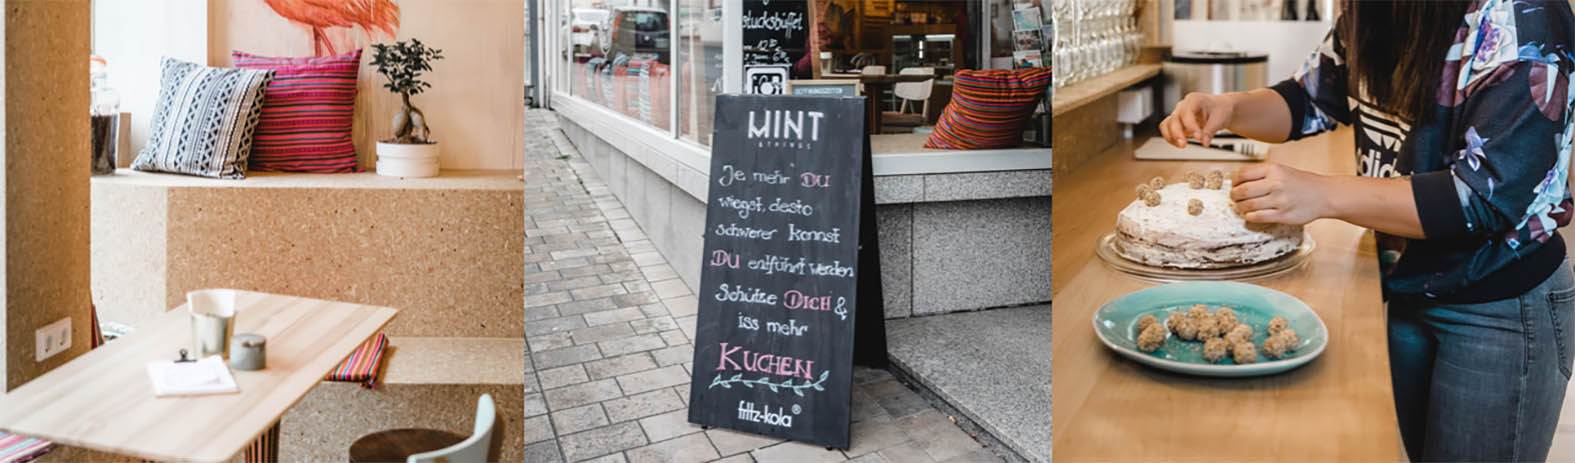 stücksbüffet
MINT
& THINGS
Je mehr DU
wiegst, desto
schwerer kannst
DU entführt werden
Schütze DICH &
iss mehr
KUCHEN
fritz-kola®
adidas